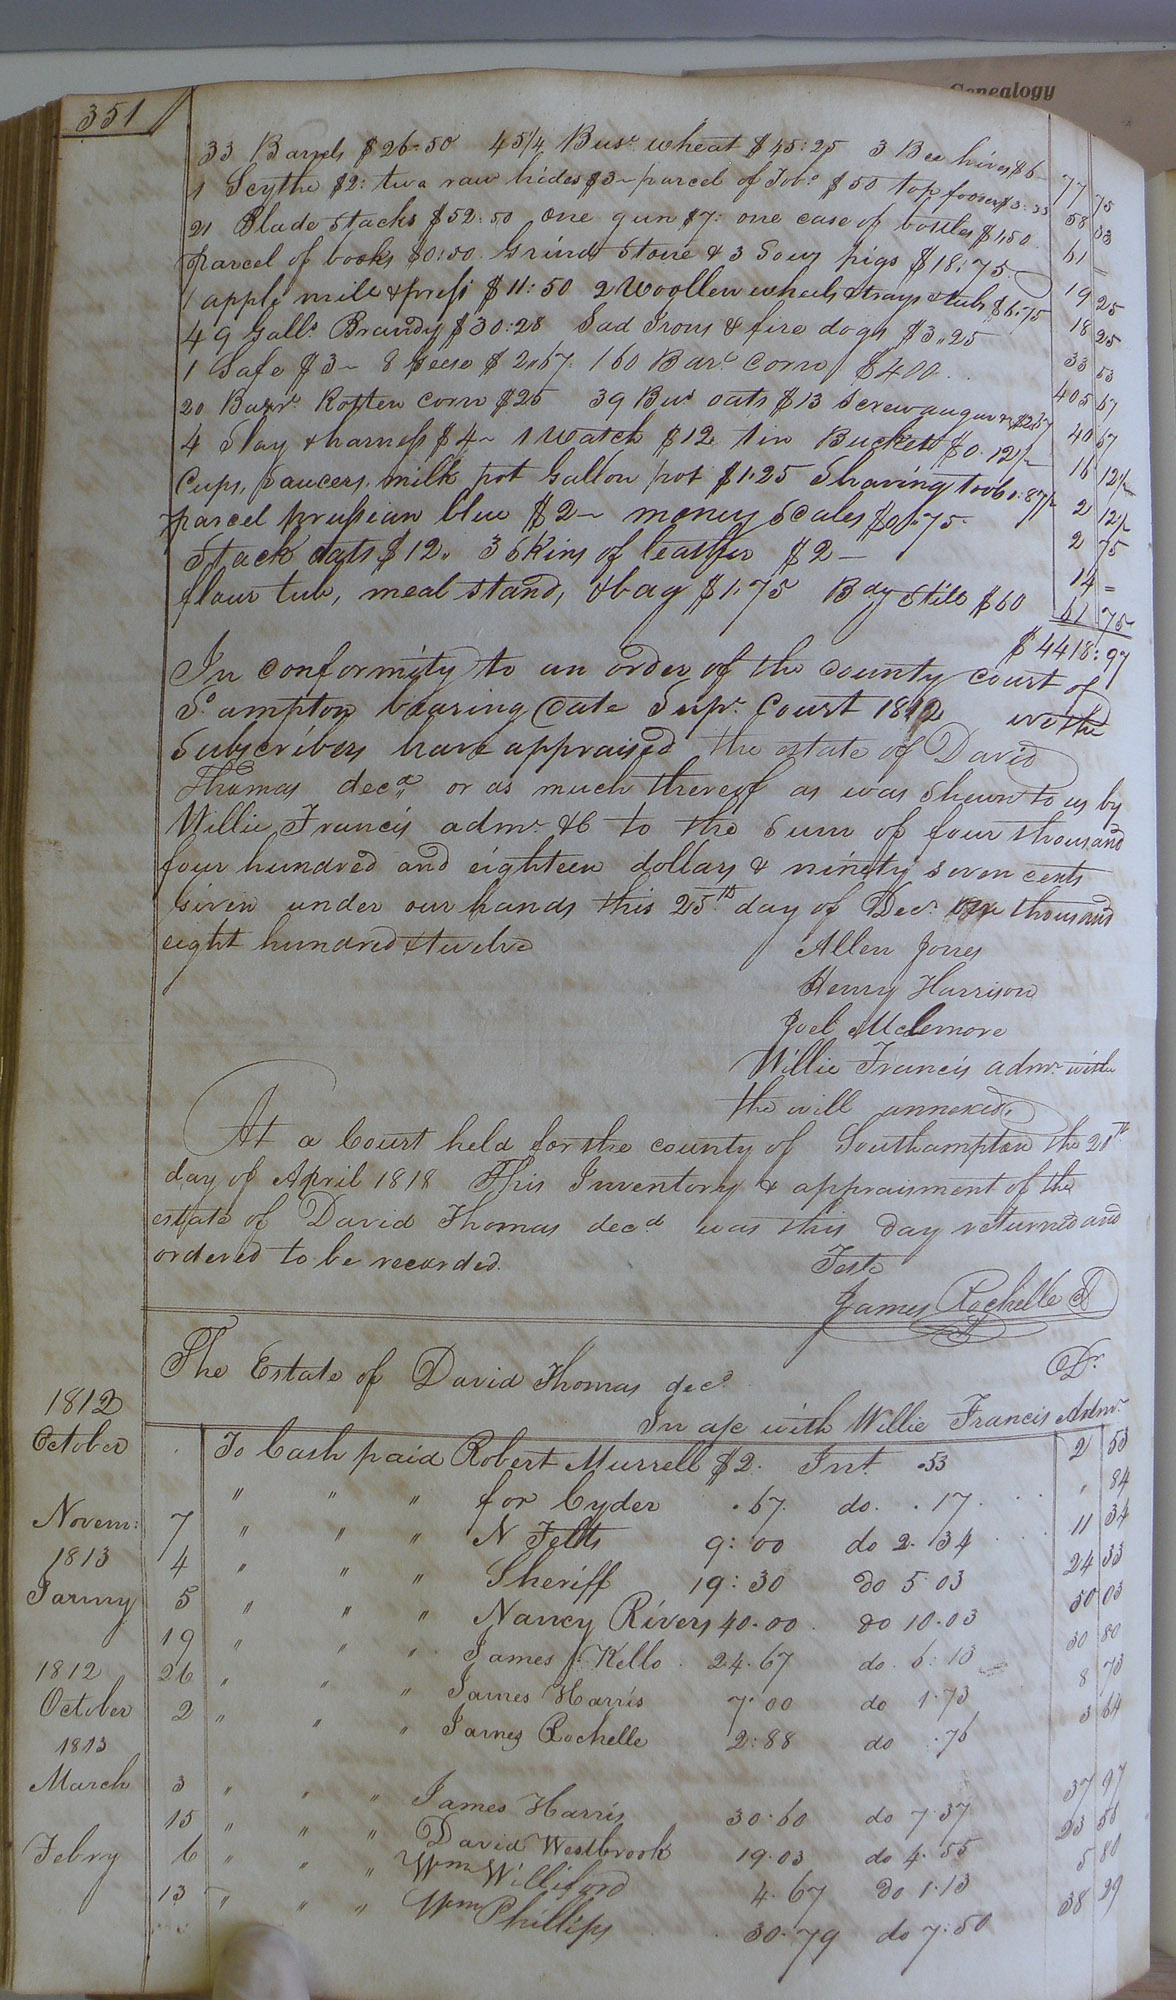 Genealogy
351
33 Barrels $26.50 45¼ Bus. wheat $45:25 3 Bee hives $6 77 75
1 Scythe $2: two raw hides $3 parcel of Tobo. $50 top fodder $3:33 58 33
21 Blade Stacks $52:50 One gun $7: one case of bottles $1,50 61 =
Parcel of books $0:50 Grind Stone & 3 Sows pigs $18:75 19 25
1 apple mill & press $11:50 2 Woollen wheels & trays & tub $6.75 18 25
49 galls. Brandy $30:28 Sad Irons & fire dogs $3.25 33 53
1 Safe $3 8 Geese $2.67 160 Bars. Corn $400 405 67
20 Barrs. Rotten Corn $25 39 Bus oats $13 Screw augur & $2.67 40 67
4 Slay & harness $4 1 Watch $12 tin Buckett $0.12½ 16 12½
Cups, Saucers, milk pot Gallon pot $1.25 Shaving tools 0:87½ 2 12½
parcel prussian blue $2 money Scales $0.75 2 75
Stack oats $12. 3 Skins of leather $2 14 =
flour tub, meal stand, & bag $1.75 Bay Still $60 61 75
$4418:97
In conformity to an order of the county court of
So.ampton bearing date Sepr. Court 1812 we the
Subscribers have appraised the estate of David
Thomas decd. or as much thereof as was Shewn to us by
Willie Francis admr. &C to the Sum of four thousand
four hundred and eighteen dollars & ninety seven cents
Given under our hands this 25th day of Decr. One thousand
eight hundred & twelve
Allen Jones
Henry Harrison
Joel Mclemore
Willie Francis admr. with
the will annexed,
At a Court held for the county of Southampton the 21th
day of April 1818 This Inventory & appraisment of the
estate of David Thomas decd was this day returned and
ordered to be recorded.
Teste
James Rochelle
The Estate of David Thomas decd. Dr.
In a/c with Willie Francis Admr.
1812
October To Cash paid Robert Murrell $2. Int. .53 2 53
" " " for Cyder .67 do. .17 " 84
Novem: 7 " " " N Felts 9:00 do 2.34 11 34
1813 4 " " " Sheriff 19:30 do 5.03 24 33
Jarny 5 " " " Nancy Rivers 40.00 do 10.03 50 03
19 " " " James J. Kello 24.67 do 6:13 30 80
1812 26 " " " James Harris 7.00 do 1.73 8 73
October 2 " " " James Rochelle 2:88 do .76 3 64
1813
March 3 " " " James Harris 30.60 do 7.37 37 97
15 " " " David Westbrook 19.03 do 4.55 23 58
Febry 6 " " " Wm Williford 4.67 do 1.13 5 80
13 " " " Wm Phillips 30.79 do 7.50 38 29